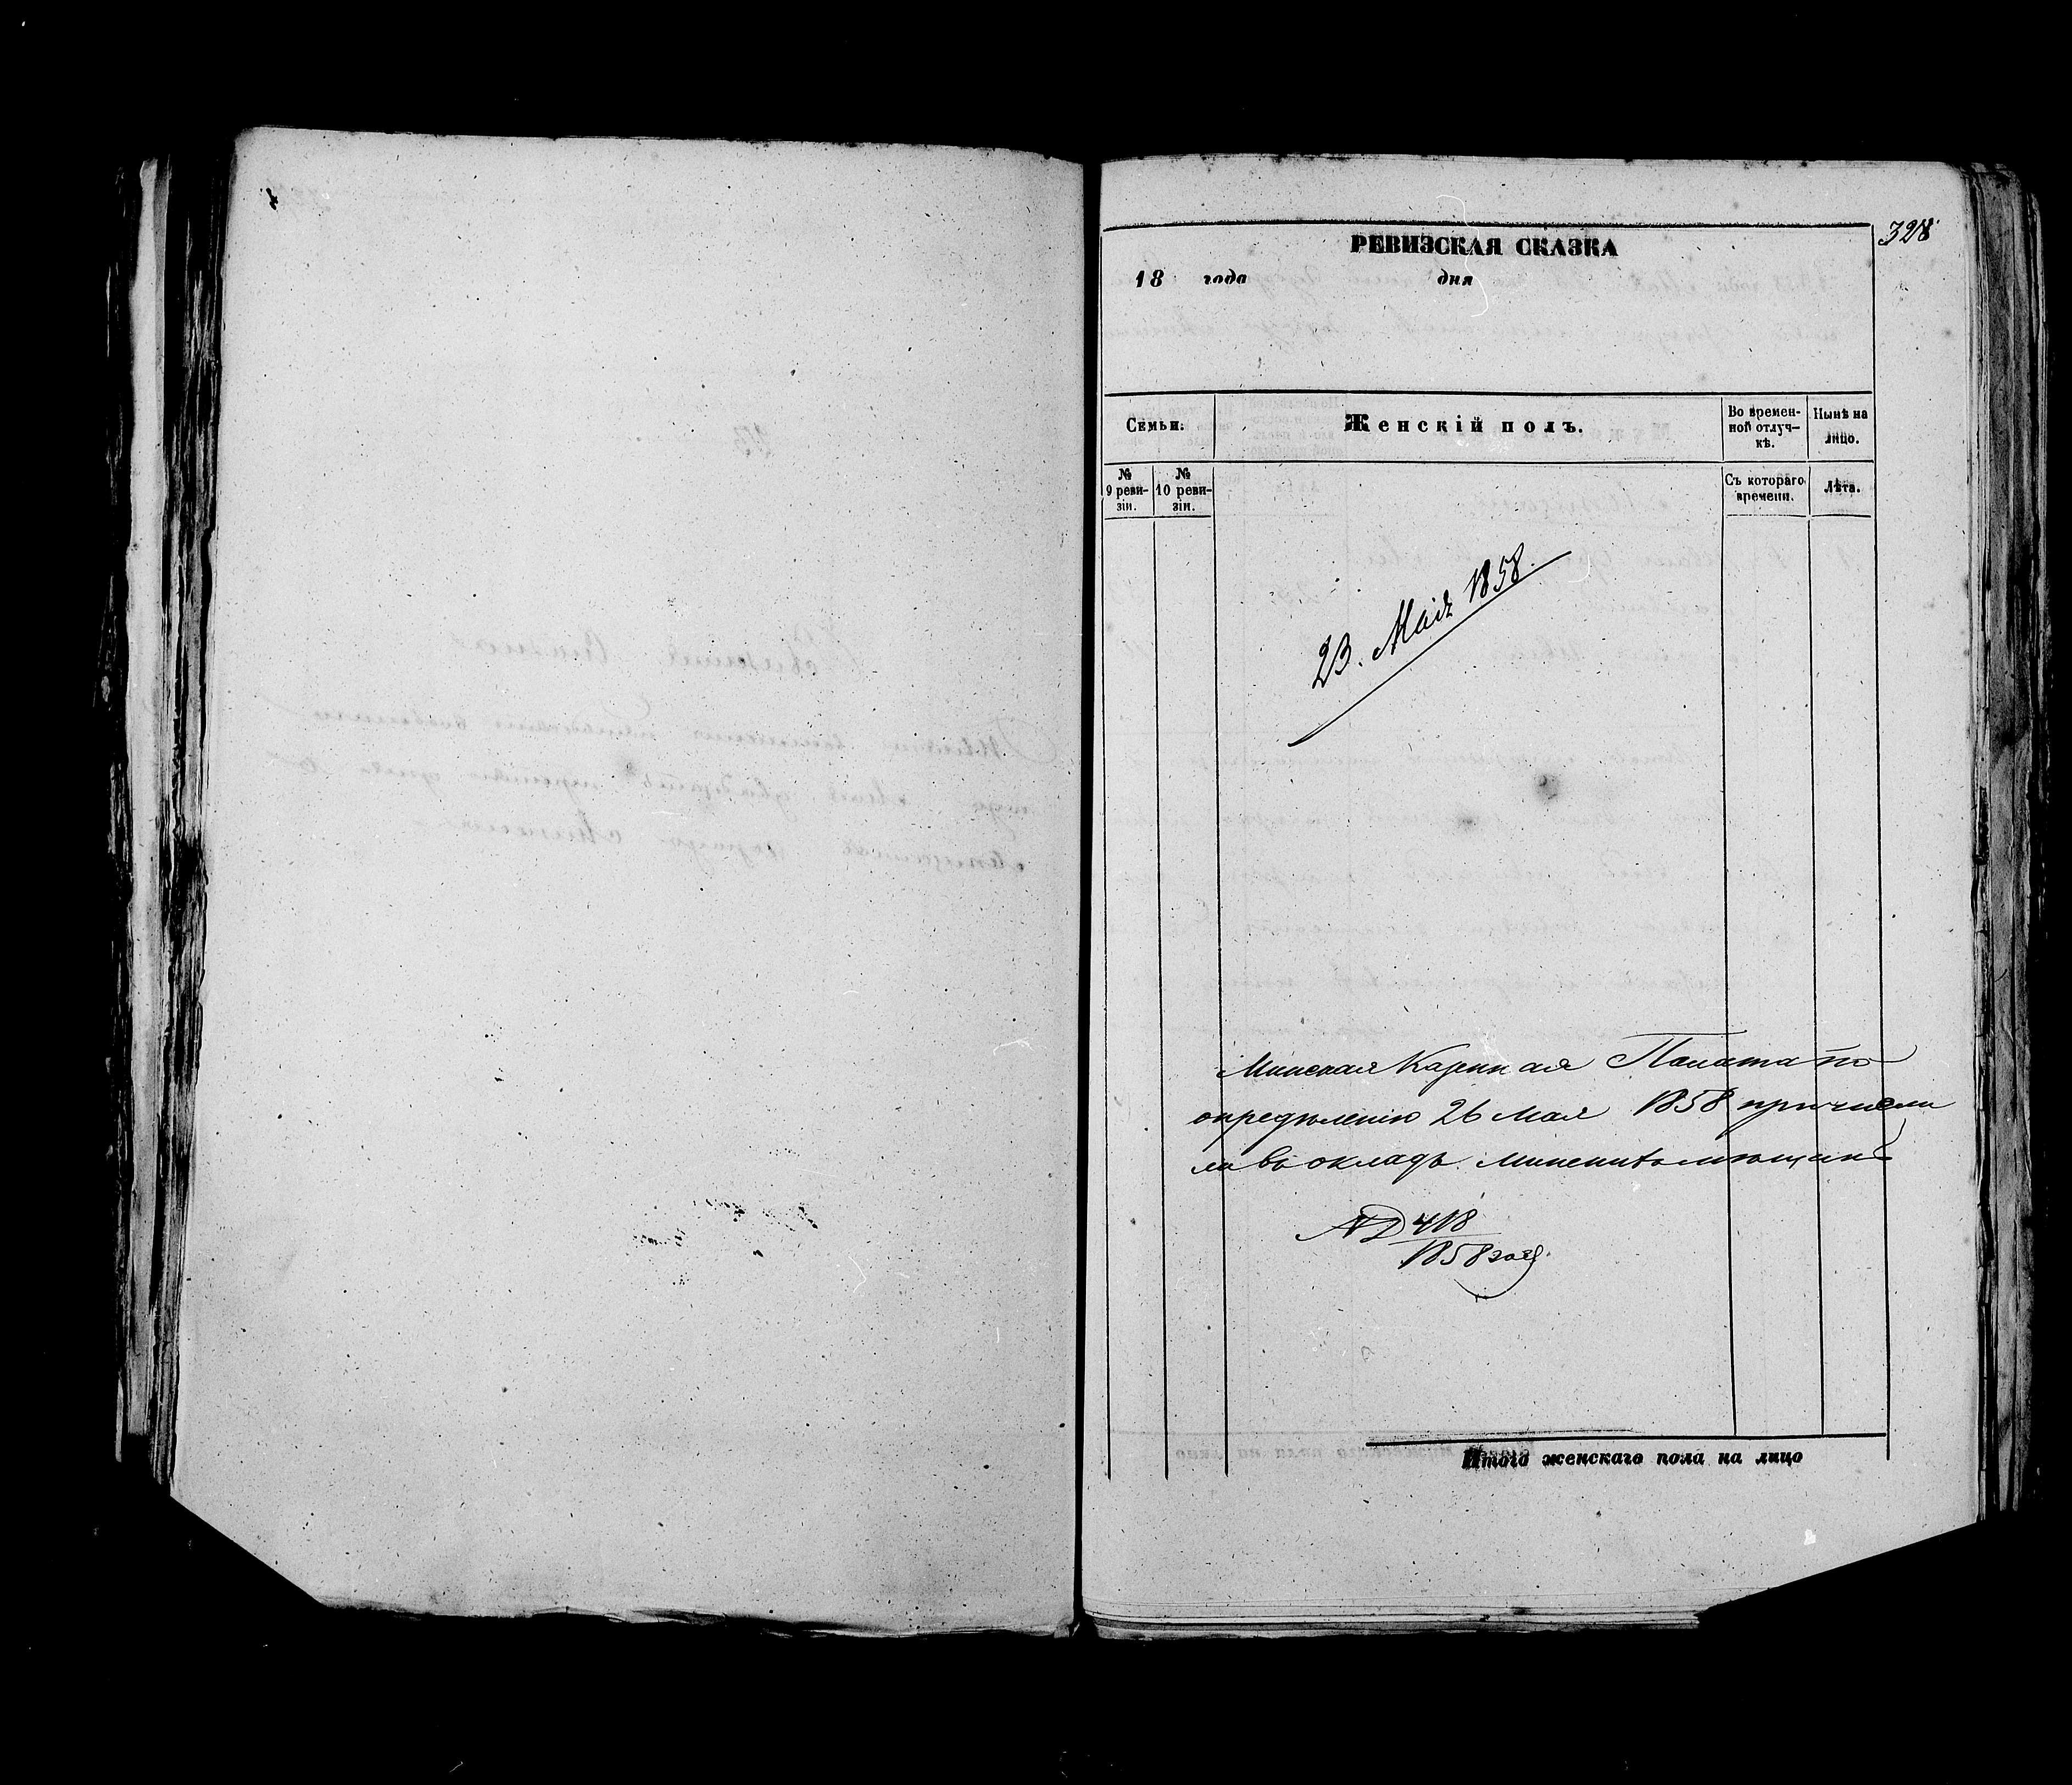 328
РЕВИЗСКАЯ СКАЗКА
18 года дня
Семьи. Женскій полъ. Во времен-ной отлуч-кѣ. Нынѣ на лицо.
№ 9 реви-зіи. № 10 реви-зіи. Съ котораго времени. Лѣта.
23. Маія 1858.
Минская Казенная Палата по
опредѣленію 26 Мая 1858 причисли
ла въ окладъ Минскихъ мѣщанъ
№ 418
1858 года
Итого женскаго пола на лицо